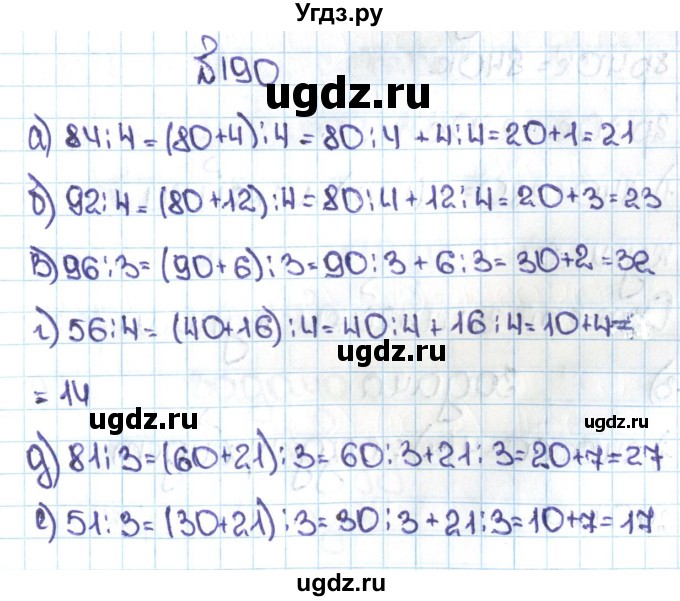 Угдз.ру
№190
ugdz.ru
а) 84:4=(80+4):4=80:4+4:4=20+1=21
б) 92:4=(80+12):4=80:4+12:4=20+3=23
в) 96:3=(90+6):3=90:3+6:3=30+2=32
г) 56:4=(40+16):4=40:4+16:4=10+4=
ugdz.ru
=14
ugdz.ru
ugdz.ru
д) 81:3=(60+21):3=60:3+21:3=20+7=27
ugdz.ru
е) 51:3=(30+21):3=30:3+21:3=10+7=17
ugdz.ru
ugdz.ru